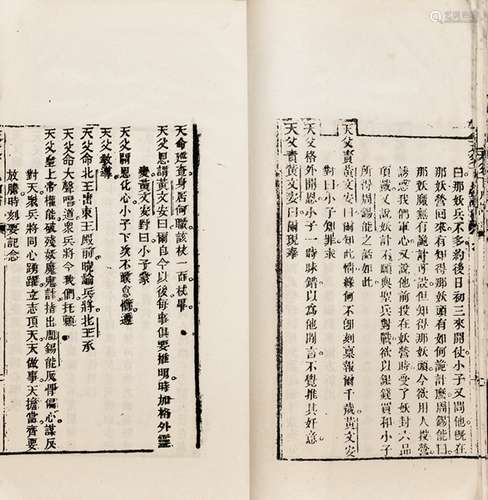 曰那妖兵不多約後日初三來開仗小子又問他既在
那妖營回來有知得那妖頭有如何詭計麼周錫能曰
那妖魔無有詭計可設但知得那妖頭今欲用人投營
誘惑我們軍心又說他前投在妖營時受了妖封六品
頂戴又說妖計不願與聖兵對戰欲以銀錢買和小子
所得周錫能之話如此
天父責黃文安曰爾知此情緣何不即刻稟報爾千歲黃文安
對曰小子知罪求
天父格外開恩小子一時昧錯以為他閒言不覺推其奸意
天父責黃文安曰爾現奉
天命巡查身居何職該杖一百杖畢
天父恩詔黃文安曰爾自今以後每事俱要推明時加格外靈
變黃文安對曰小子蒙
天父開恩化心小子下次不敢怠慢遵
天父教導
天父命北王出東王殿前曉諭兵將北王承
天父命大聲唱道眾兵將今我們托賴
天父皇上帝權能破殘妖魔鬼計指出周錫能反骨偏心謀反
對天眾兵將同心踴躍立志頂天天做事天擔當齊要
放膽時刻要記念